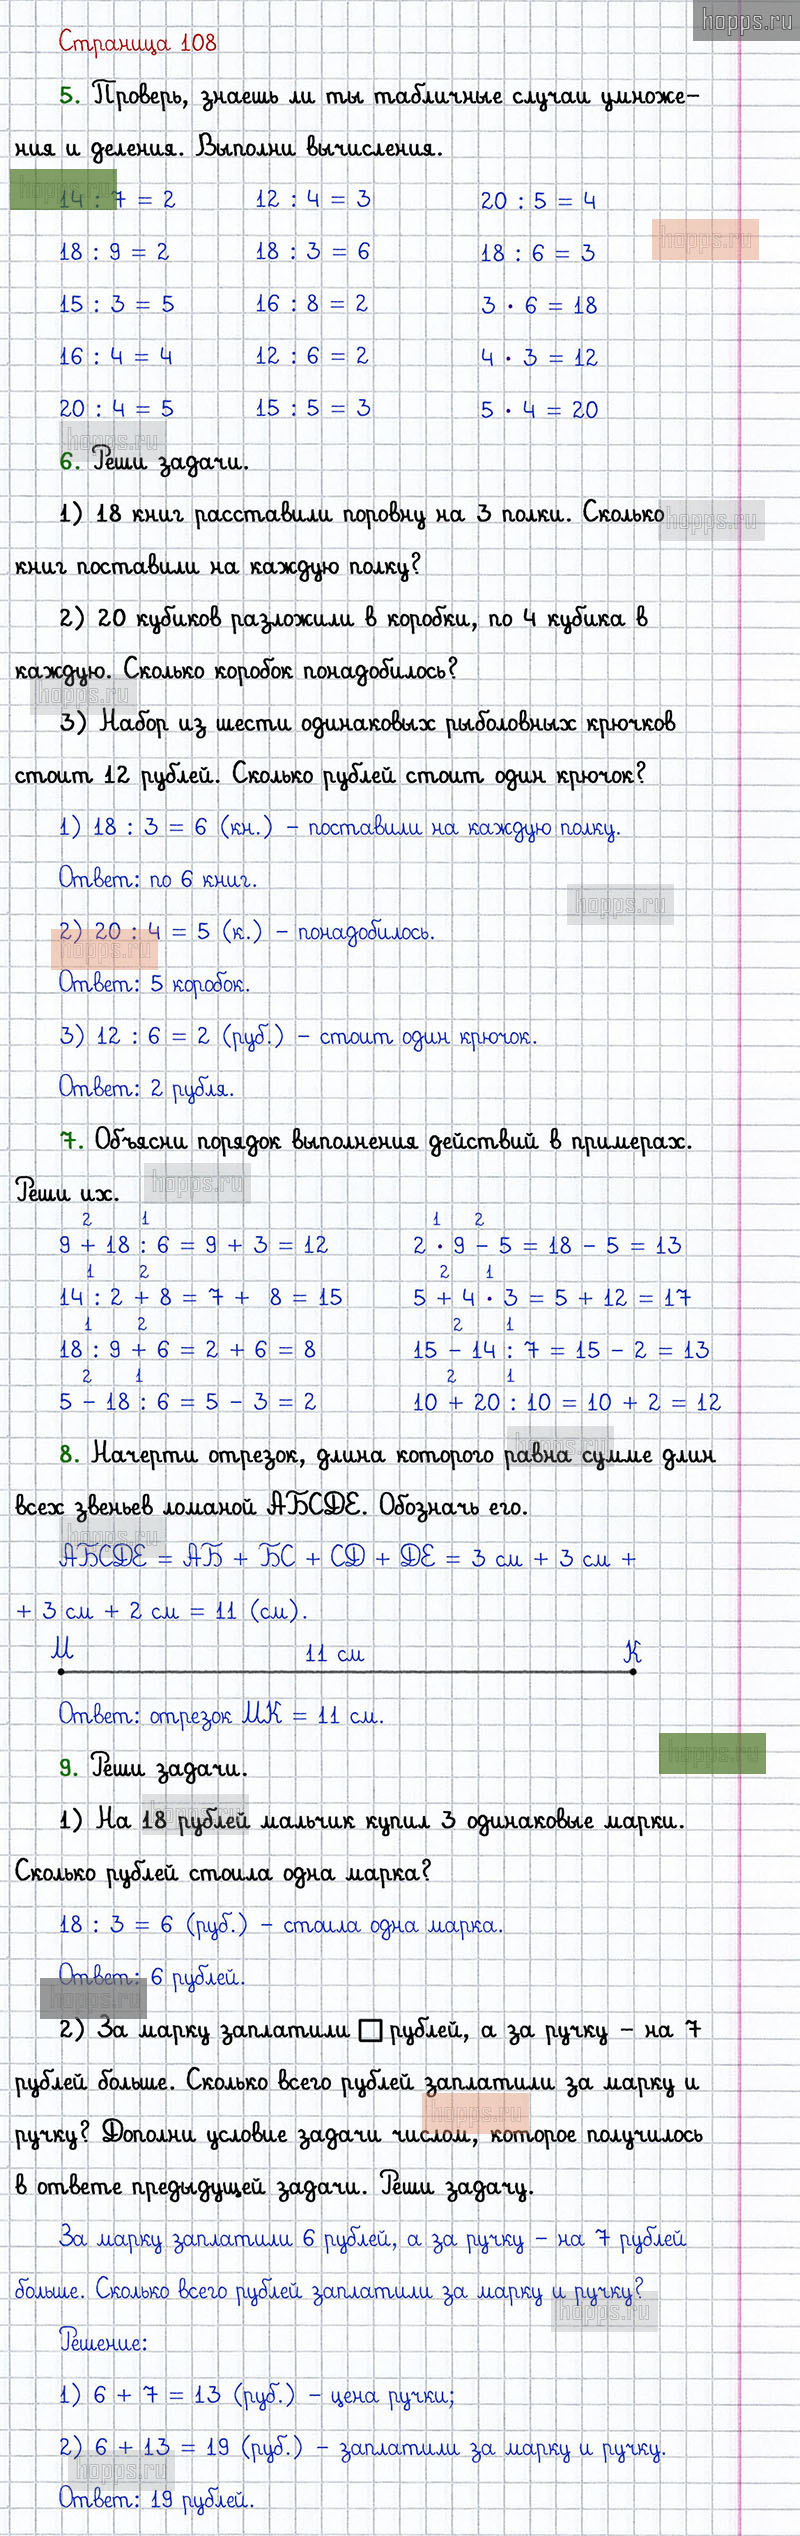 hopps.ru
Страница 108
5. Проверь, знаешь ли ты табличные случаи умноже-
ния и деления. Выполни вычисления.
14 : 7 = 2 12 : 4 = 3 20 : 5 = 4
hopps.ru
hopps.ru
18 : 9 = 2 18 : 3 = 6 18 : 6 = 3
15 : 3 = 5 16 : 8 = 2 3 · 6 = 18
16 : 4 = 4 12 : 6 = 2 4 · 3 = 12
20 : 4 = 5 15 : 5 = 3 5 · 4 = 20
hopps.ru
6. Реши задачи.
1) 18 книг расставили поровну на 3 полки. Сколько
hopps.ru
книг поставили на каждую полку?
2) 20 кубиков разложили в коробки, по 4 кубика в
каждую. Сколько коробок понадобилось?
hopps.ru
3) Набор из шести одинаковых рыболовных крючков
стоит 12 рублей. Сколько рублей стоит один крючок?
1) 18 : 3 = 6 (кн.) – поставили на каждую полку.
Ответ: по 6 книг.
hopps.ru
2) 20 : 4 = 5 (к.) – понадобилось.
hopps.ru
Ответ: 5 коробок.
3) 12 : 6 = 2 (руб.) – стоит один крючок.
Ответ: 2 рубля.
7. Объясни порядок выполнения действий в примерах.
Реши их.
hopps.ru
2 1 1 2
9 + 18 : 6 = 9 + 3 = 12 2 · 9 – 5 = 18 – 5 = 13
1 2 2 1
14 : 2 + 8 = 7 + 8 = 15 5 + 4 · 3 = 5 + 12 = 17
1 2 2 1
18 : 9 + 6 = 2 + 6 = 8 15 – 14 : 7 = 15 – 2 = 13
2 1 2 1
5 – 18 : 6 = 5 – 3 = 2 10 + 20 : 10 = 10 + 2 = 12
hopps.ru
8. Начерти отрезок, длина которого равна сумме длин
всех звеньев ломаной АБСДЕ. Обозначь его.
hopps.ru
АБСДЕ = АБ + БС + СД + ДЕ = 3 см + 3 см +
+ 3 см + 2 см = 11 (см).
М 11 см К
Ответ: отрезок МК = 11 см.
hopps.ru
9. Реши задачи.
hopps.ru
1) На 18 рублей мальчик купил 3 одинаковые марки.
Сколько рублей стоила одна марка?
18 : 3 = 6 (руб.) – стоила одна марка.
Ответ: 6 рублей.
hopps.ru
2) За марку заплатили □ рублей, а за ручку – на 7
рублей больше. Сколько всего рублей заплатили за марку и
hopps.ru
ручку? Дополни условие задачи числом, которое получилось
в ответе предыдущей задачи. Реши задачу.
За марку заплатили 6 рублей, а за ручку – на 7 рублей
больше. Сколько всего рублей заплатили за марку и ручку?
hopps.ru
Решение:
1) 6 + 7 = 13 (руб.) – цена ручки;
2) 6 + 13 = 19 (руб.) – заплатили за марку и ручку.
hopps.ru
Ответ: 19 рублей.